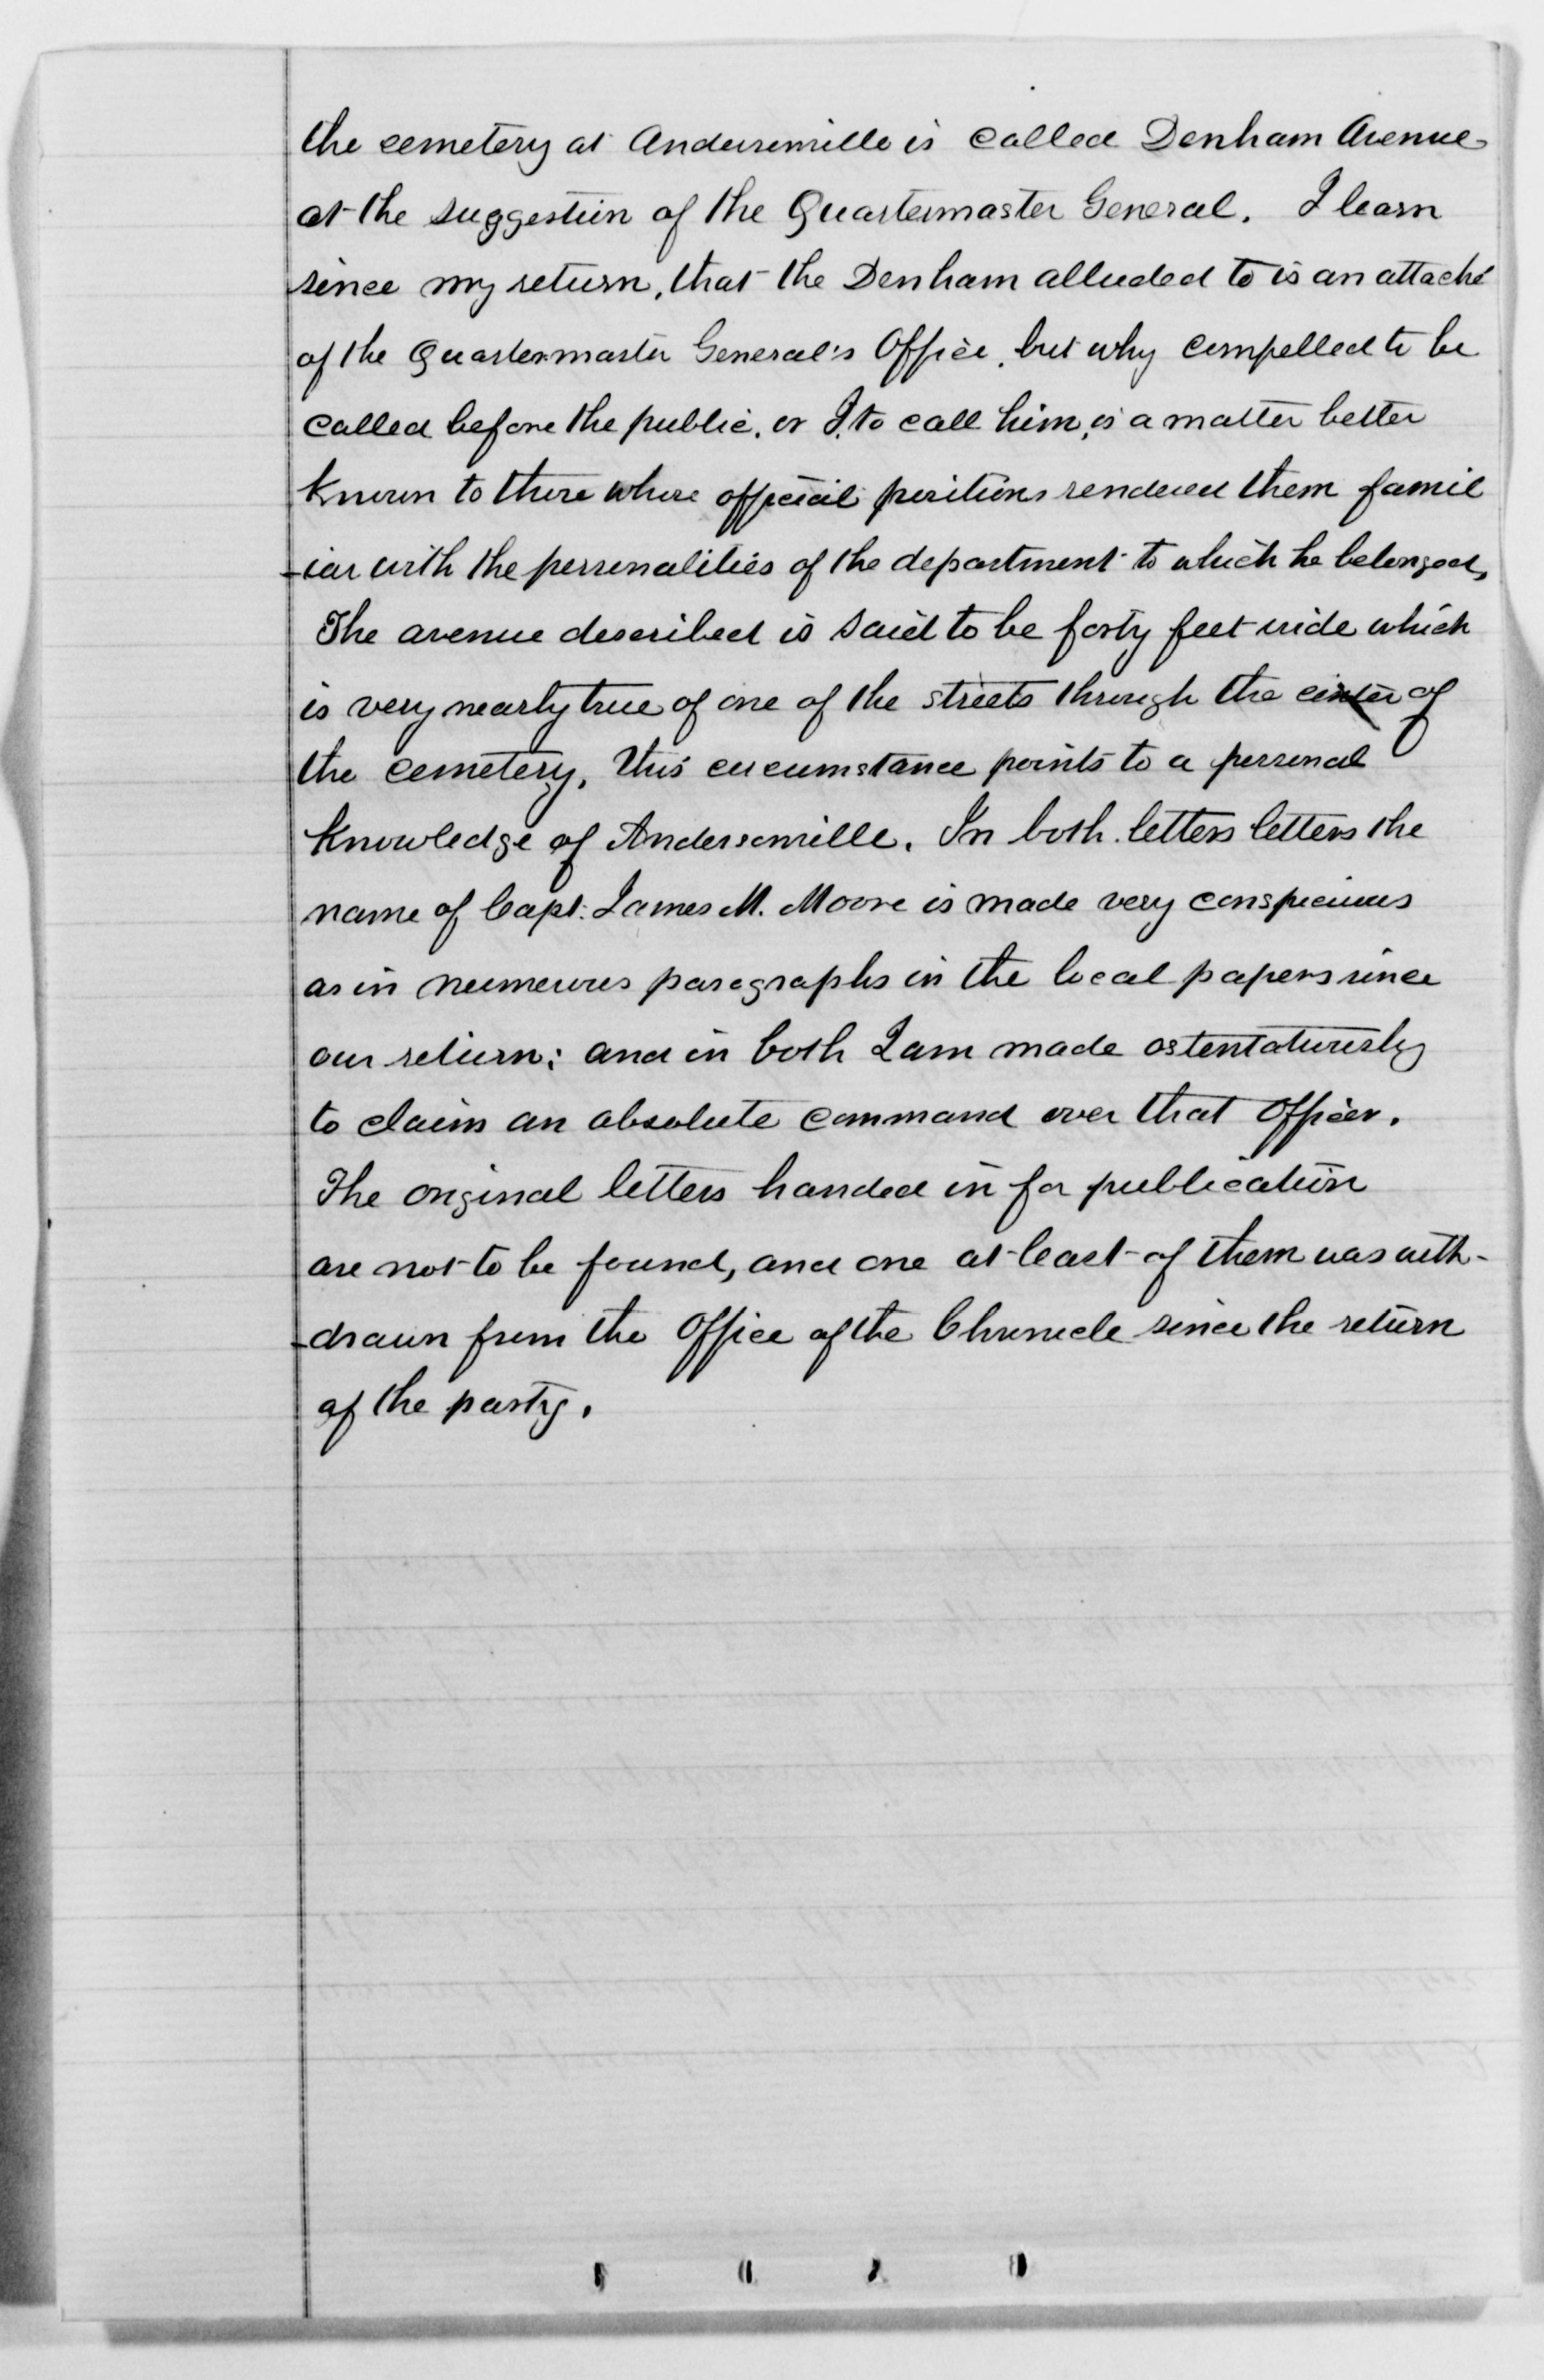 the cemetery at Andersonville is called Denham Avenue
at the suggestion of the Quartermaster General. I learn
since my return, that the Denham alluded to is an attaché
of the Quartermaster General's Office, but why compelled to be
called before the public, or I, to call him, is a matter better
known to those whose official positions rendered them famil
-iar with the personalities of the department to which he belonged,
The avenue described is said to be forty feet wide which
is very nearly true of one of the streets through the center of
the cemetery, this circumstance points to a personal
knowledge of Andersonville. In both letters letters the
name of Capt. James M. Moore is made very conspicuous
as in numerous paragraphs in the local papers since
our return; and in both I am made ostentatiously
to claim an absolute command over that Officer.
The original letters handed in for publication
are not to be found, and one at least of them was with-
-drawn from the Office of the Chronicle since the return
of the party.